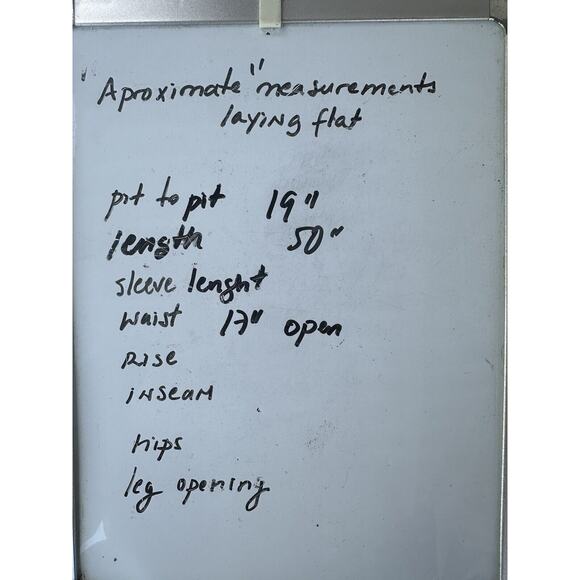 "Aproximate" measurements
laying flat
pit to pit 19"
length 50"
sleeve lenght
waist 17" open
Rise
inseam
hips
leg opening